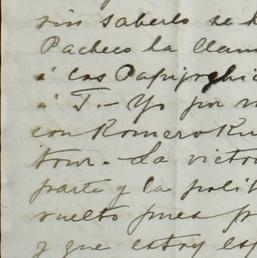 sin saberlo se h
Pacheco ha llam
á las
á T. - Yo por
con Romero Ru
tour. - La victor
parte y la polit
vuelto pues p
y que estoy esp